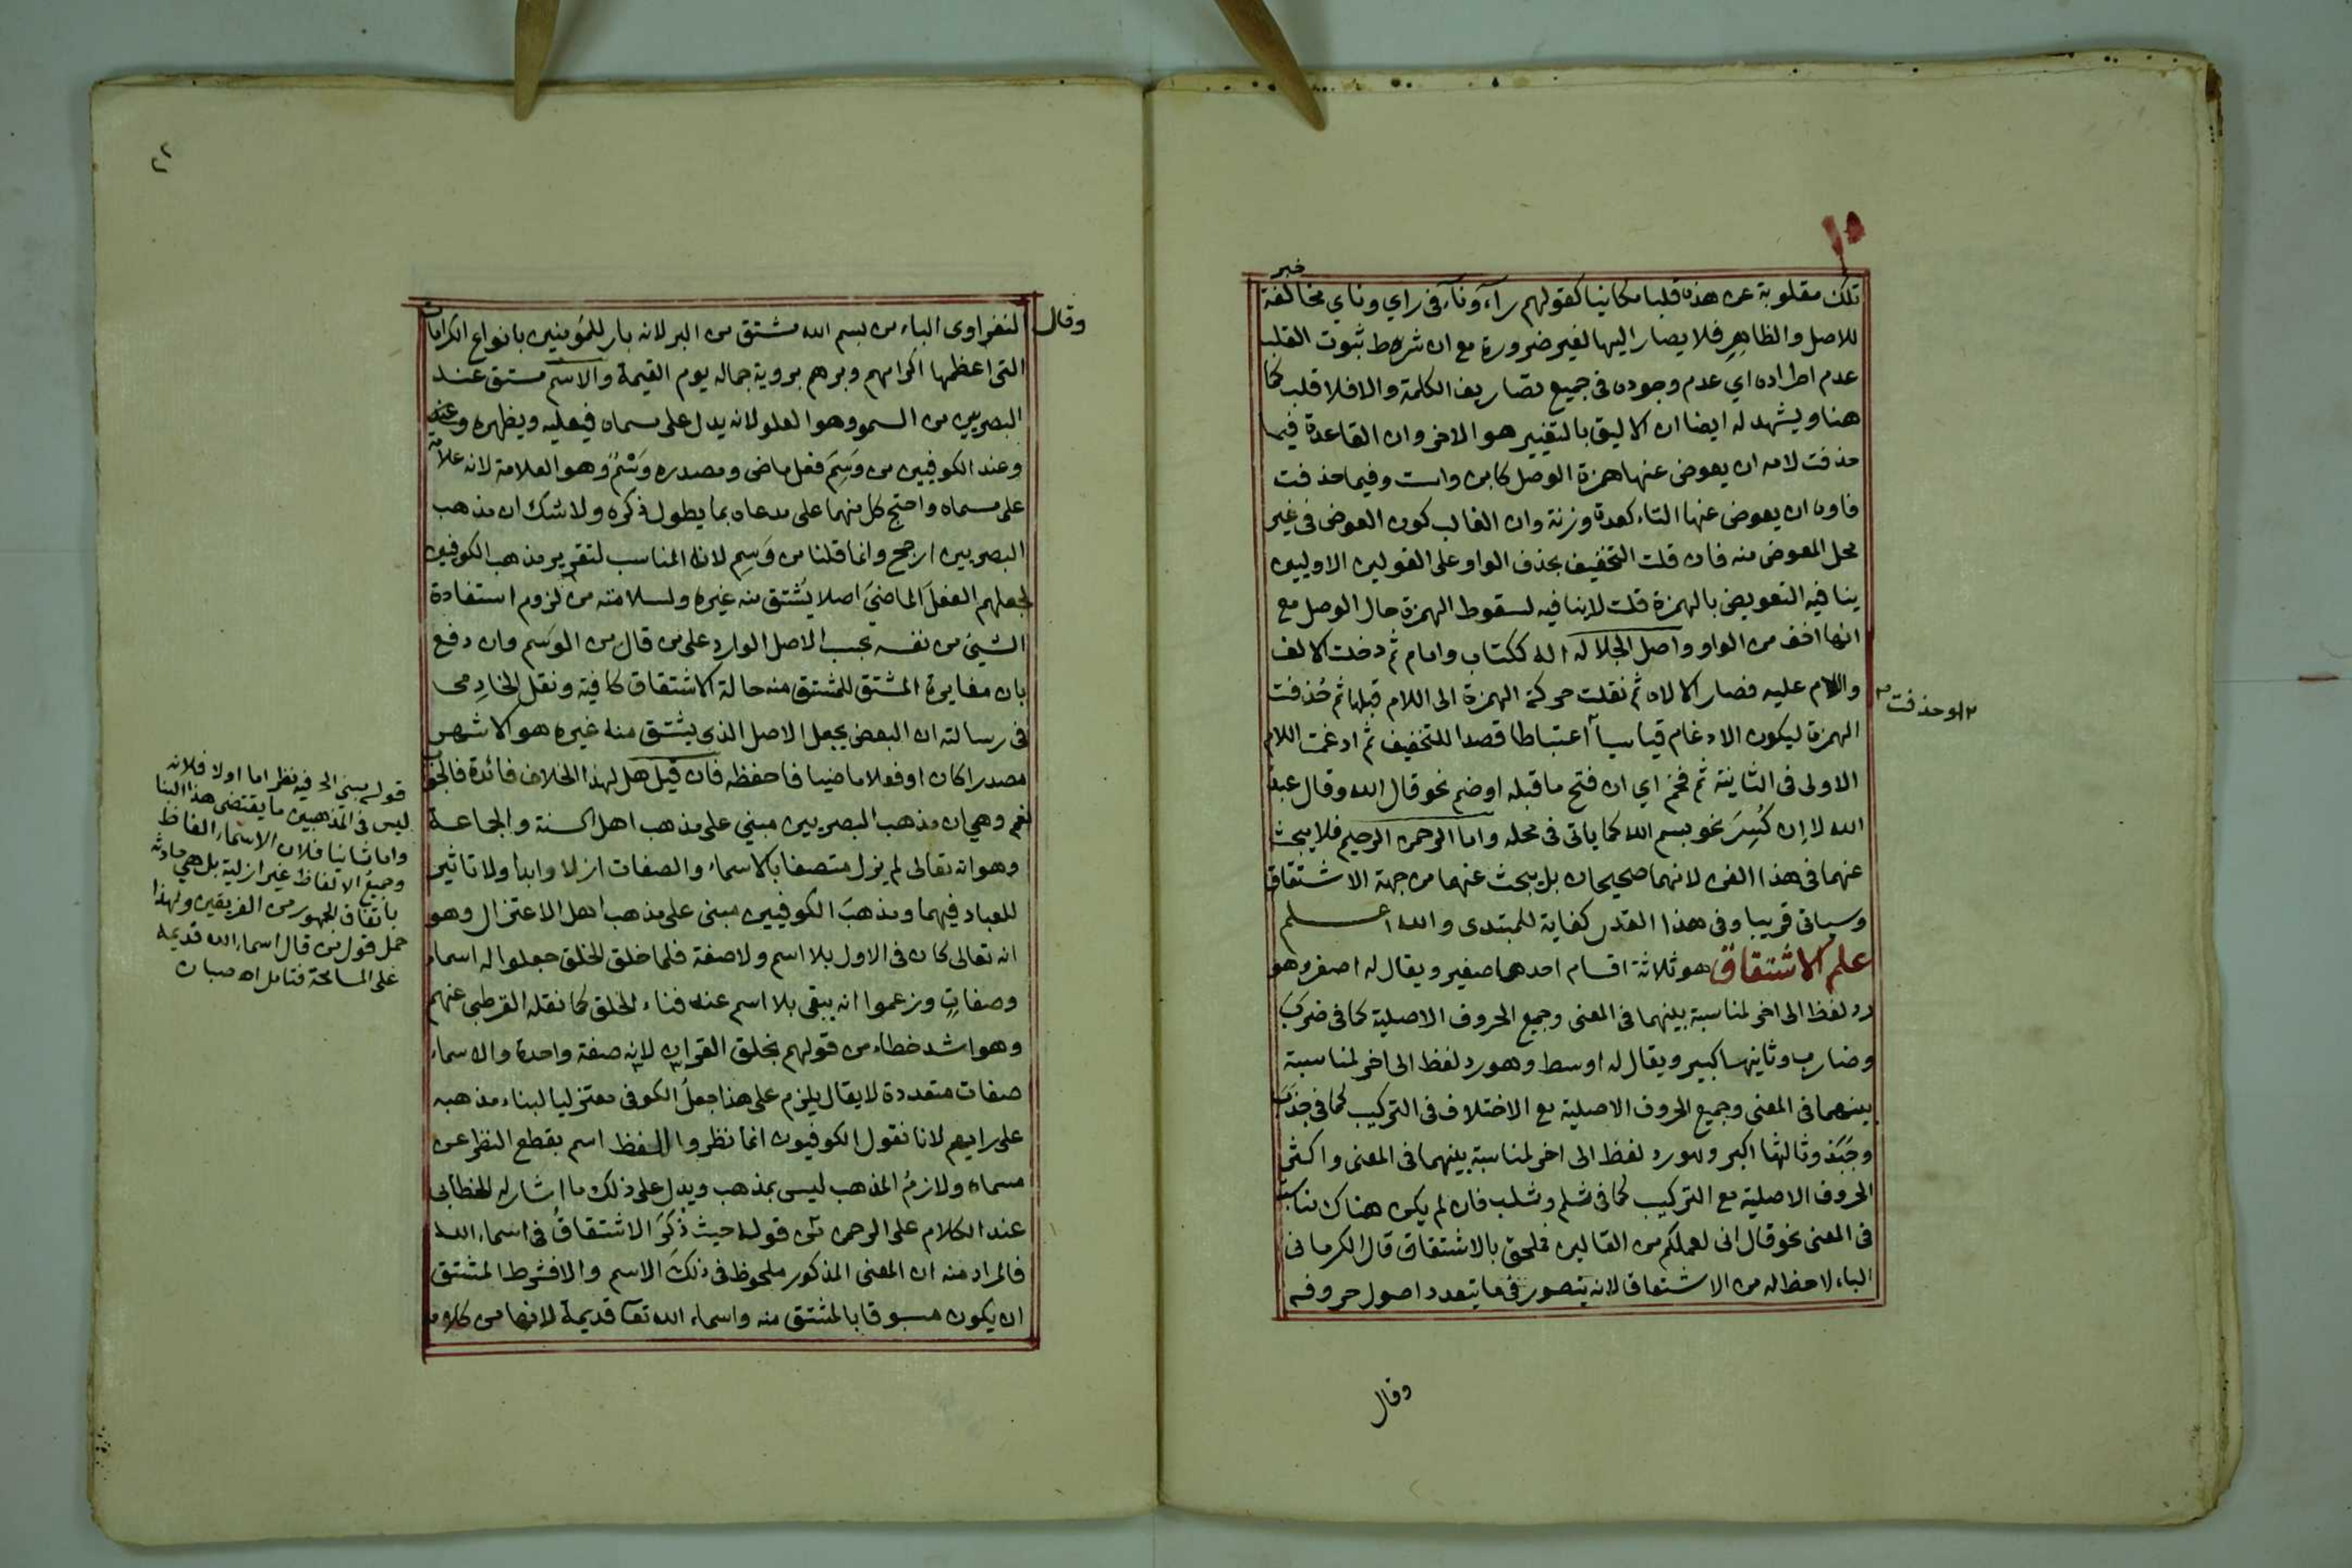 خبر
تلك مقلوبة عن هذه قلبا مكانيا كقولهم راء وناء في راي وناي مخالفة
للاصل والظاهر فلا يصار اليها لغير ضرورة مع ان شرط ثبوت القلب
عدم اطراده اي عدم وجوده في جميع تصاريف الكلمة والا فلا قلب كما
هنا ويشهد له ايضا ان الاليق بالتغيير هو الاخر وان القاعدة فيما
حذفت لامه ان يعوض عنها همزة الوصل كابن واست وفيما حذفت
فاوه ان يعوض عنها التاء كعدة وزنة وان الغالب كون العوض في غير
محل المعوض منه فان قلت التخفيف بحذف الواو على القولين الاولين
ينافيه التعويض بالهمزة قلت لا ينافيه لسقوط الهمزة حال الوصل مع
انها اخف من الواو واصل الجلالة اله ككتاب وامام ثم دخلت الالف
واللام عليه فصار الالاه ثم نقلت حركة الهمزة الى اللام قبلها ثم حُذفت
او حذفت
الهمزة ليكون الادغام قياسيا اعتباطا قصدا للتخفيف ثم ادغمت اللام
الاولى في الثانية ثم فخم اي ان فتح ما قبله او ضم نحو قال الله وقال عبد
الله لا اِن كُسِرَ نحو بسم الله كما ياتى في محله واما الرحمن الرحيم فلا يبحث
عنهما في هذا الفن لانهما صحيحان بل يبحث عنهما من جهة الاشتقاق
وسياتى قريبا وفي هذا القدر كفاية للمبتدى والله اعلم
علم الاشتقاق هو ثلاثة اقسام احدها صغير ويقال له اصغر وهو
رد لفظ الى اخر لمناسبة بينهما في المعنى وجميع الحروف الاصلية كما في ضرب
وضارب وثانيها كبير ويقال له اوسط وهو رد لفظ الى اخر لمناسبة
بينهما في المعنى وجميع الحروف الاصلية مع الاختلاف في التركيب كما في جذب
وجبذ وثالثها اكبر وهو رد لفظ الى اخر لمناسبة بينهما في المعنى واكثر
الحروف الاصلية مع التركيب كما في ثلم وثلب فان لم يكن هناك مناسبة
في المعنى نحو قال انى لعملكم من القالين فملحق بالاشتقاق قال الكرمانى
الباء لا حظ له من الاشتقاق لانه يتصور في ما يتعدد اصول حروفه
وقال
٢٢
وقال
النفراوى الباء من بسم الله مشتق من البر لانه بار للمؤمنين بانواع الكرامات
التى اعظمها اكرامهم وبرهم بروية جماله يوم القيمة والاسم مشتق عند
البصريين من السمو وهو العلو لانه يدل على مسماه فيعليه ويظهره
وعند الكوفيين من وَسِمَ فعل ماضى ومصدره وَسْمٌ وهو العلامة لانه علامة
على مسماه واحتج كل منهما على مدعاه بما يطول ذكره ولا شك ان مذهب
البصريين ارجح وانما قلنا من وَسِم لانه المناسب لتقرير مذهب الكوفيين
لجعلهم الفعل الماضى اصلا يشتق منه غيره ولسلامته من لزوم استفادة
الشيئ من نفسه بحسب الاصل الوارد على من قال من الوسم وان دفع
بان مغايرة المشتق للمشتق منه حالة الاشتقاق كافية ونقل الخادمى
في رسالته ان البعض يجعل الاصل الذى يشتق منه غيره هو الاشهر
مصدرا كان او فعلا ماضيا فاحفظه فان قيل هل لهذا الخلاف فائدة
نعم وهي ان مذهب البصريين مبني على مذهب اهل السنة والجماعة
وهو انه تعالى لم يزل متصفا بالاسماء والصفات ازلا وابدا ولا تاثير
للعباد فيهما ومذهبَ الكوفيين مبنى على مذهب اهل الاعتزال وهو
انه تعالى كان في الاول بلا اسم ولا صفة فلما خلق الخلق جعلوا له اسماء
وصفاتٍ وزعموا انه يبقى بلا اسم عند فناء الخلق كما نقله القرطبى عنهم
وهو اشد خطاء من قولهم بخلق القران لانه صفة واحدة والاسماء
صفات متعددة لا يقال يلزم على هذا جعلُ الكوفى معتزليا لبناء مذهبه
على رايهم لانا نقول الكوفيون انما نظروا للفظ اسم بقطع النظر عن
مسماه ولازمُ المذهب ليس بمذهب ويدل على ذلك ما اشار له الخطابى
عند الكلام على الرحمن من قوله حيث ذُكرَ الاشتقاقُ في اسماء الله
فالمراد منه ان المعنى المذكور ملحوظ في ذلك الاسم والا فشرط المشتق
ان يكون مسبوقا بالمشتق منه واسماء الله تعا قديمة لانها من كلامه
قوله مبني الخ فيه نظر اما اولا فلانه
ليس في المذهبين ما يقتضى هذا البنا
واما ثانيا فلان الاسماء الفاظ
وجميع الالفاظ غير ازلية بل هي حادثه
باتفاق الجمهور من الفريقين ولهذا
حمل قول من قال اسماء الله قديمه
على المسامحة فتامل اه صبان